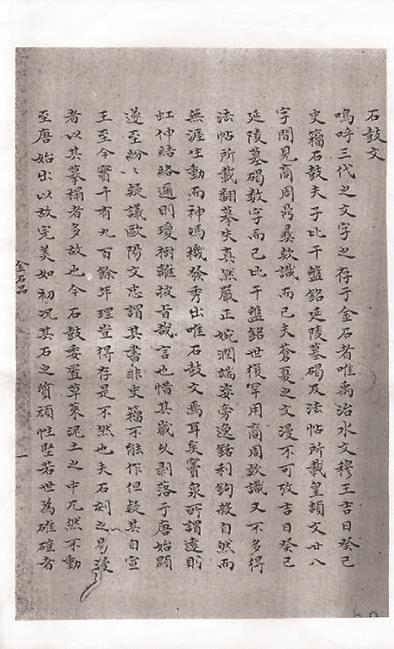 石鼓文
嗚呼三代之文字之存于金石者唯禹治水文穆王吉日癸巳
史籀石鼓夫子比干盤銘延陵墓碣及法帖所載皇頡文廿八
字間見商周鼎彝欵識而已夫蒼夏之文漫不可攷吉日癸巳
延陵墓碣數字而已比干盤銘世復罕用商周欵識又不多得
法帖所載翻摹失真嚴正婉潤端姿旁逸銛利鉤殺自然而
無涯生動而神馮機發秀出唯石鼓文焉耳矣竇泉所謂遠則
虹伸結絡邇則瓊樹離披哉言也惜其歲久剥落于唐始顯
遂至紛〻疑議歐陽文忠謂其書非史籀不能作但疑其自宣
王至今實千有九百餘年理豈得存是不然也夫石刻之易漫
者以其摹搨者多故也今石鼓委置草萊泥土之中兀然不動
至唐始出以故完美如初况其石之質頑性堅若世為碓磑者
金石品
一